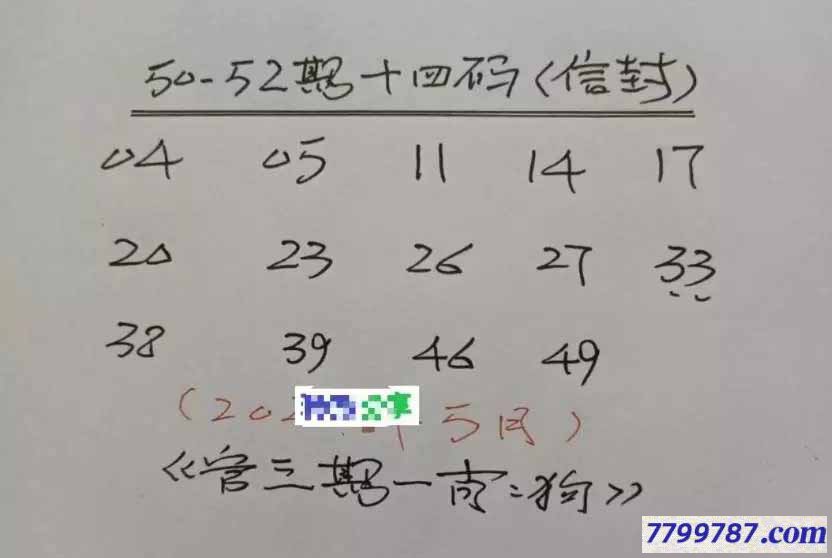 50-52期十四码(信封)
04 05 11 14 17
20 23 26 27 33
38 39 46 49
(202 年5月)
分享
《管三期一肖:狗》
7799787.com